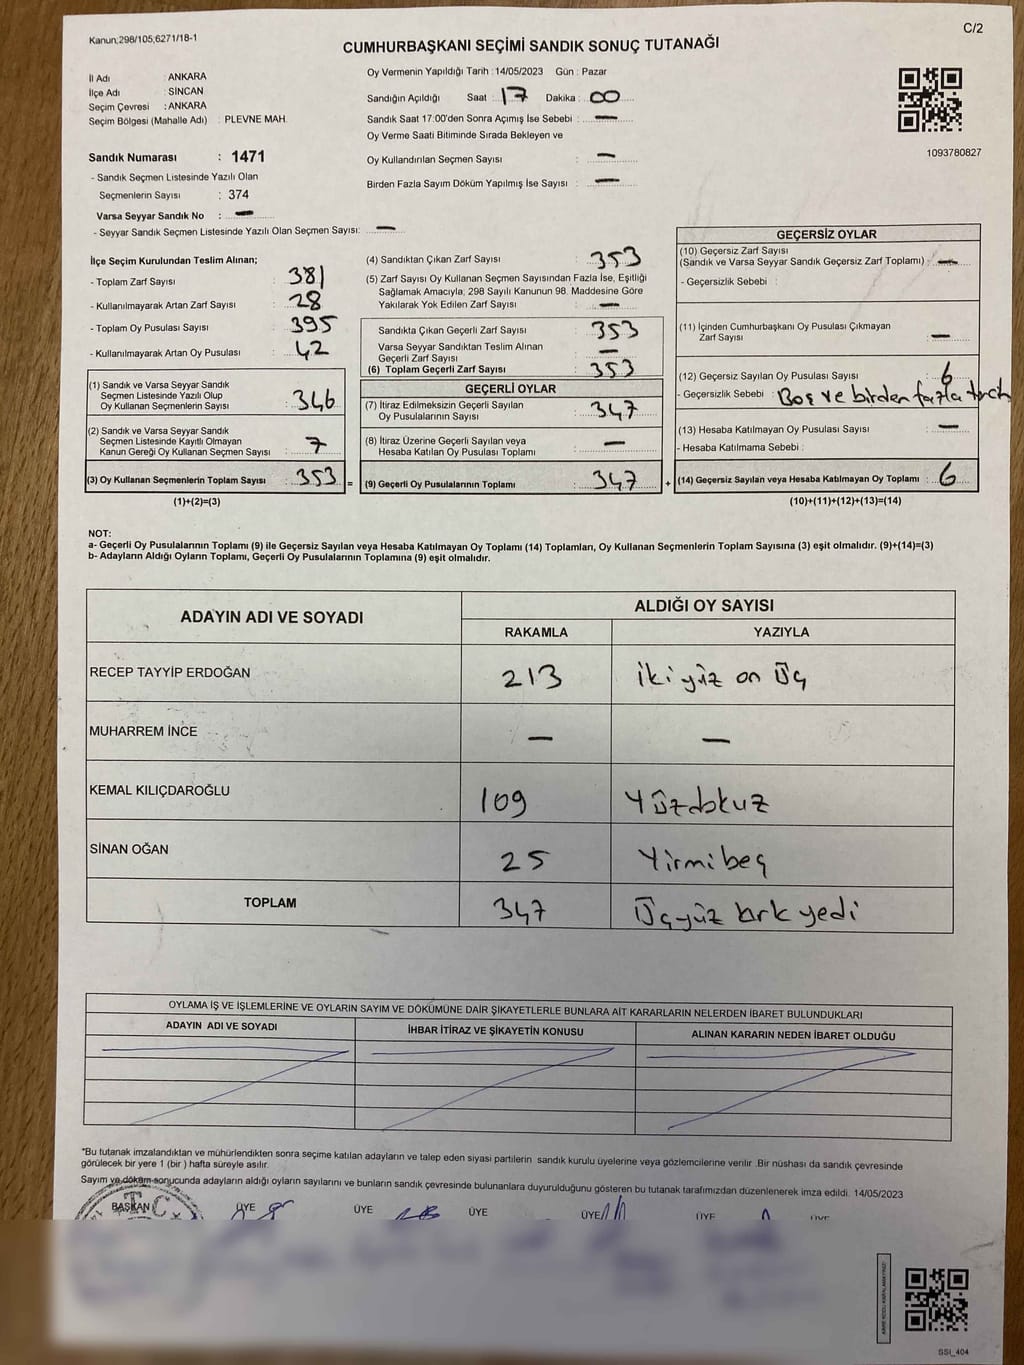 Kanun;298/105,6271/18-1
C/2
CUMHURBAŞKANI SEÇİMİ SANDIK SONUÇ TUTANAĞI
İl Adı : ANKARA
İlçe Adı : SİNCAN
Seçim Çevresi : ANKARA
Seçim Bölgesi (Mahalle Adı) : PLEVNE MAH.
Sandık Numarası : 1471
- Sandık Seçmen Listesinde Yazılı Olan
Seçmenlerin Sayısı : 374
Varsa Seyyar Sandık No : —
- Seyyar Sandık Seçmen Listesinde Yazılı Olan Seçmen Sayısı: —
Oy Vermenin Yapıldığı Tarih : 14/05/2023 Gün : Pazar
Sandığın Açıldığı Saat : 17 Dakika : 00
Sandık Saat 17:00'den Sonra Açımış İse Sebebi : —
Oy Verme Saati Bitiminde Sırada Bekleyen ve
Oy Kullandırılan Seçmen Sayısı : —
Birden Fazla Sayım Döküm Yapılmış İse Sayısı : —
1093780827
İlçe Seçim Kurulundan Teslim Alınan;
- Toplam Zarf Sayısı : 381
- Kullanılmayarak Artan Zarf Sayısı : 28
- Toplam Oy Pusulası Sayısı : 395
- Kullanılmayarak Artan Oy Pusulası : 42
(1) Sandık ve Varsa Seyyar Sandık
Seçmen Listesinde Yazılı Olup
Oy Kullanan Seçmenlerin Sayısı : 346
(2) Sandık ve Varsa Seyyar Sandık
Seçmen Listesinde Kayıtlı Olmayan
Kanun Gereği Oy Kullanan Seçmen Sayısı : 7
(3) Oy Kullanan Seçmenlerin Toplam Sayısı : 353 =
(1)+(2)=(3)
(4) Sandıktan Çıkan Zarf Sayısı : 353
(5) Zarf Sayısı Oy Kullanan Seçmen Sayısından Fazla İse, Eşitliği
Sağlamak Amacıyla; 298 Sayılı Kanunun 98. Maddesine Göre
Yakılarak Yok Edilen Zarf Sayısı : —
Sandıkta Çıkan Geçerli Zarf Sayısı : 353
Varsa Seyyar Sandıktan Teslim Alınan
Geçerli Zarf Sayısı : —
(6) Toplam Geçerli Zarf Sayısı : 353
GEÇERLİ OYLAR
(7) İtiraz Edilmeksizin Geçerli Sayılan
Oy Pusulalarının Sayısı : 347
(8) İtiraz Üzerine Geçerli Sayılan veya
Hesaba Katılan Oy Pusulası Toplamı : —
(9) Geçerli Oy Pusulalarının Toplamı : 347 +
GEÇERSİZ OYLAR
(10) Geçersiz Zarf Sayısı
(Sandık ve Varsa Seyyar Sandık Geçersiz Zarf Toplamı) : —
- Geçersizlik Sebebi :
(11) İçinden Cumhurbaşkanı Oy Pusulası Çıkmayan
Zarf Sayısı : —
(12) Geçersiz Sayılan Oy Pusulası Sayısı : 6
- Geçersizlik Sebebi : Boş ve birden fazla
(13) Hesaba Katılmayan Oy Pusulası Sayısı : —
- Hesaba Katılmama Sebebi :
(14) Geçersiz Sayılan veya Hesaba Katılmayan Oy Toplamı : 6
(10)+(11)+(12)+(13)=(14)
NOT:
a- Geçerli Oy Pusulalarının Toplamı (9) ile Geçersiz Sayılan veya Hesaba Katılmayan Oy Toplamı (14) Toplamları, Oy Kullanan Seçmenlerin Toplam Sayısına (3) eşit olmalıdır. (9)+(14)=(3)
b- Adayların Aldığı Oyların Toplamı, Geçerli Oy Pusulalarının Toplamına (9) eşit olmalıdır.
ADAYIN ADI VE SOYADI
ALDIĞI OY SAYISI
RAKAMLA YAZIYLA
RECEP TAYYİP ERDOĞAN 213 iki yüz on üç
MUHARREM İNCE — —
KEMAL KILIÇDAROĞLU 109 Yüzdokuz
SİNAN OĞAN 25 Yirmibeş
TOPLAM 347 Üçyüz kırk yedi
OYLAMA İŞ VE İŞLEMLERİNE VE OYLARIN SAYIM VE DÖKÜMÜNE DAİR ŞİKAYETLERLE BUNLARA AİT KARARLARIN NELERDEN İBARET BULUNDUKLARI
ADAYIN ADI VE SOYADI İHBAR İTİRAZ VE ŞİKAYETİN KONUSU ALINAN KARARIN NEDEN İBARET OLDUĞU
*Bu tutanak imzalandıktan ve mühürlendikten sonra seçime katılan adayların ve talep eden siyasi partilerin sandık kurulu üyelerine veya gözlemcilerine verilir .Bir nüshası da sandık çevresinde
görülecek bir yere 1 (bir ) hafta süreyle asılır.
Sayım ve döküm sonucunda adayların aldığı oyların sayılarını ve bunların sandık çevresinde bulunanlara duyurulduğunu gösteren bu tutanak tarafımızdan düzenlenerek imza edildi. 14/05/2023
T.C
BAŞKAN ÜYE ÜYE ÜYE ÜYE ÜYE ÜYE
SSI_404